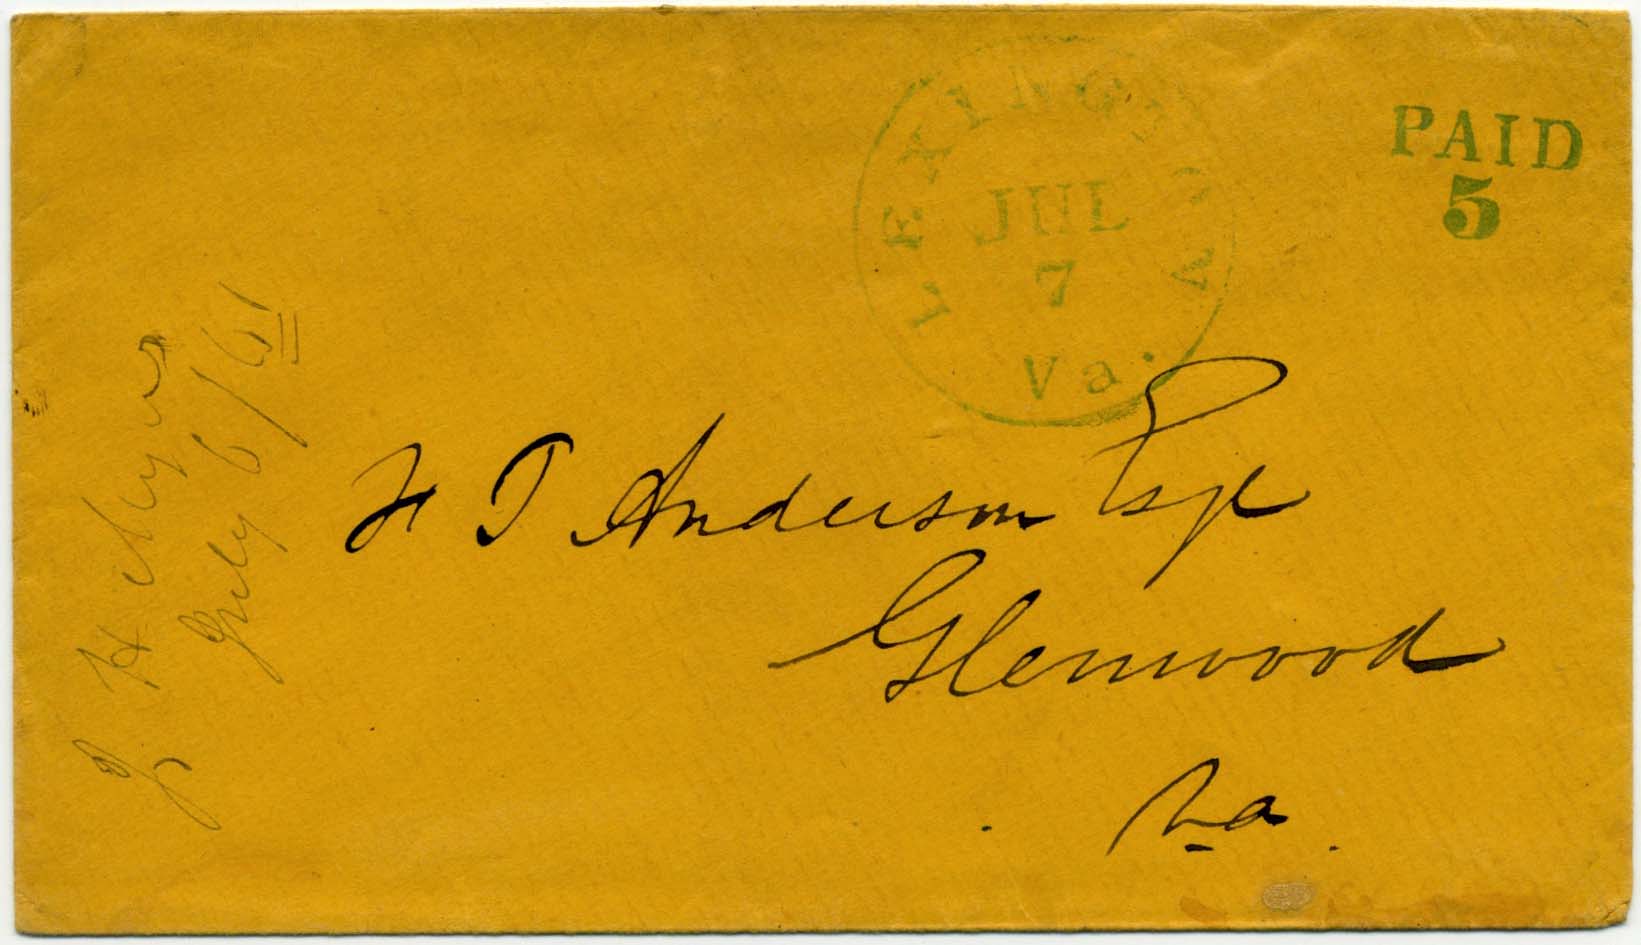 LEXINGTON
JUL
7
Va.
PAID
5
F T Anderson Esqr
Glenwood
Va.
J H
July 6/61